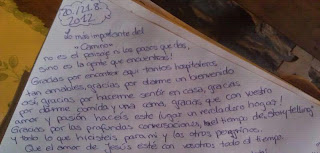 20/21.8.
2012
Lo más importante del
"Camino"
no es el paisaje ni los pasos que das,
sino es la gente que encuentras!
Gracias por encontrar aquí tantos hospitaleros
tan amables, gracias por darme un bienvenido
así, gracias por hacerme sentir en casa, gracias
por darme comida y una cama, gracias que con vuestro
amor y pasión hacéis este lugar un verdadero hogar!
Gracias por las profundas conversaciones, el tiempo de "storytelling"
y todo lo que hicisteis para mí y los otros peregrinos.
Que el amor de Jesús esté con vosotros todo el tiempo.